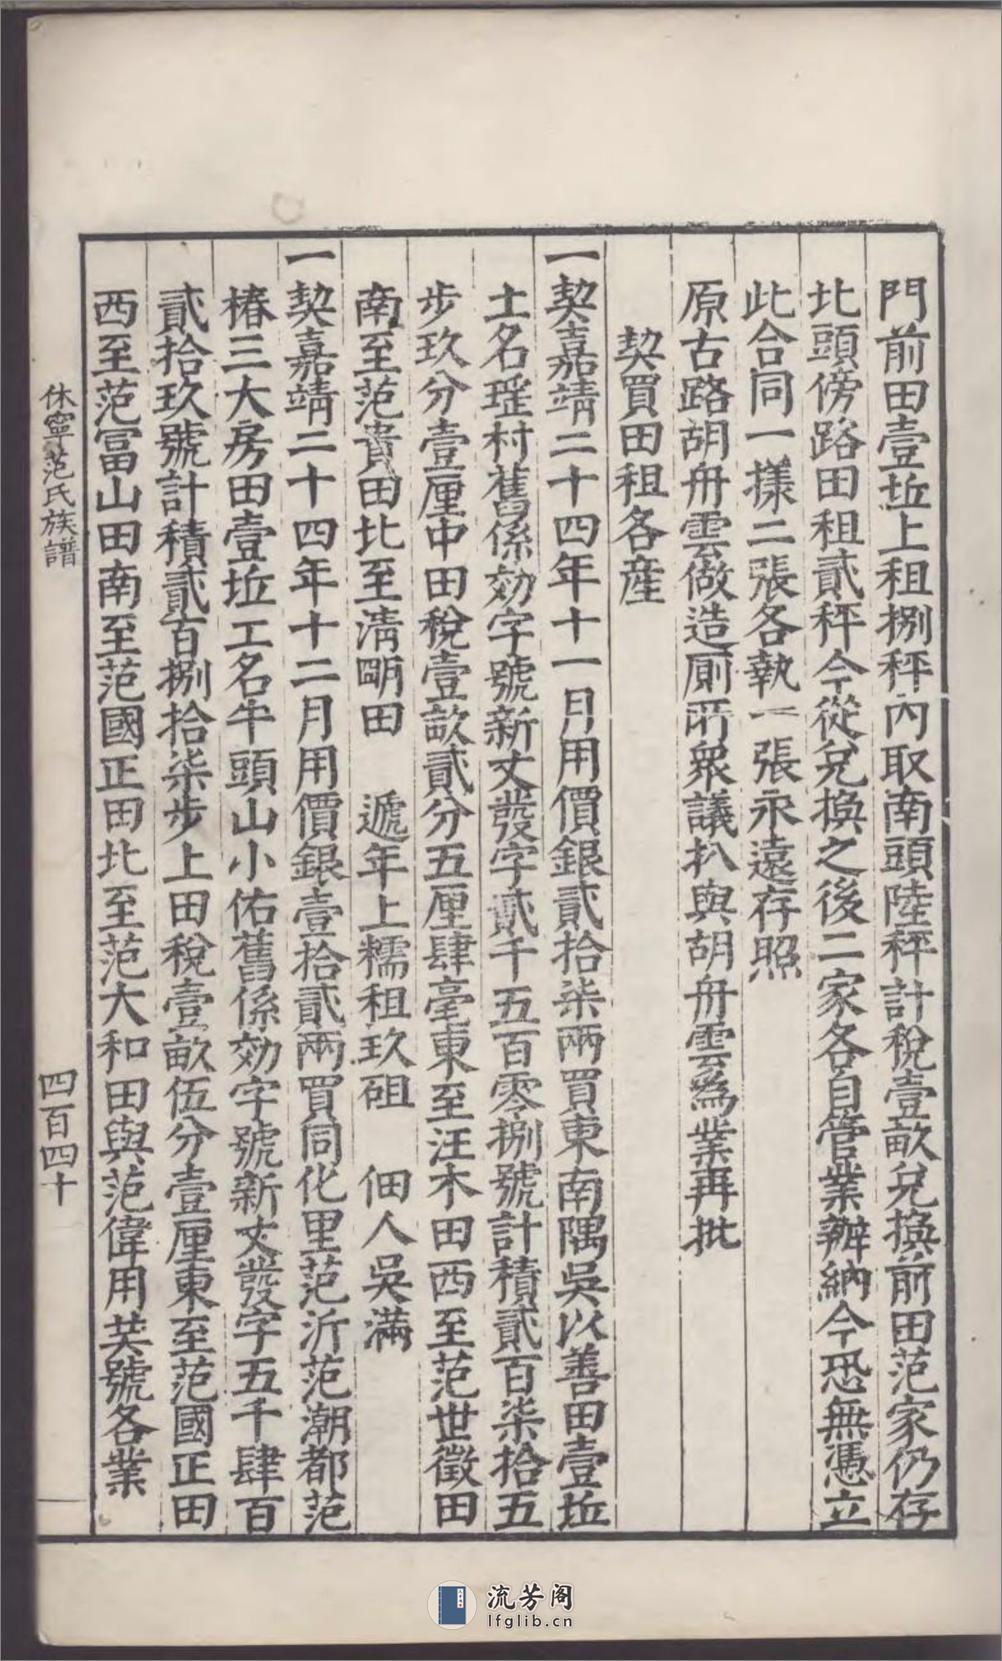 門前田壹坵上租捌秤內取南頭陸秤計稅壹畝兌換前田范家仍存
北頭傍路田租貳秤今從兌換之後二家各自管業辦納今恐無憑立
此合同一樣二張各執一張永遠存照
原古路胡舟雲做造厠所衆議扒與胡舟雲為業再批
契買田租各產
一契嘉靖二十四年十一月用價銀貳拾柒兩買東南隅吳以善田壹坵
土名瑶村舊係効字號新丈發字貳千五百零捌號計積貳百柒拾五
步玖分壹厘中田稅壹畝貳分五厘肆毫東至汪木田西至范世徵田
南至范貴田北至淸明田 遞年上糯租玖砠 佃人吳滿
一契嘉靖二十四年十二月用價銀壹拾貳兩買同化里范沂范潮都范
椿三大房田壹坵工名牛頭山小佑舊係効字號新丈發字五千肆百
貳拾玖號計積貳百捌拾柒步上田稅壹畝伍分壹厘東至范國正田
西至范富山田南至范國正田北至范大和田與范偉用共號各業
休寧范氏族譜
四百四十
流芳阁
lfglib.cn